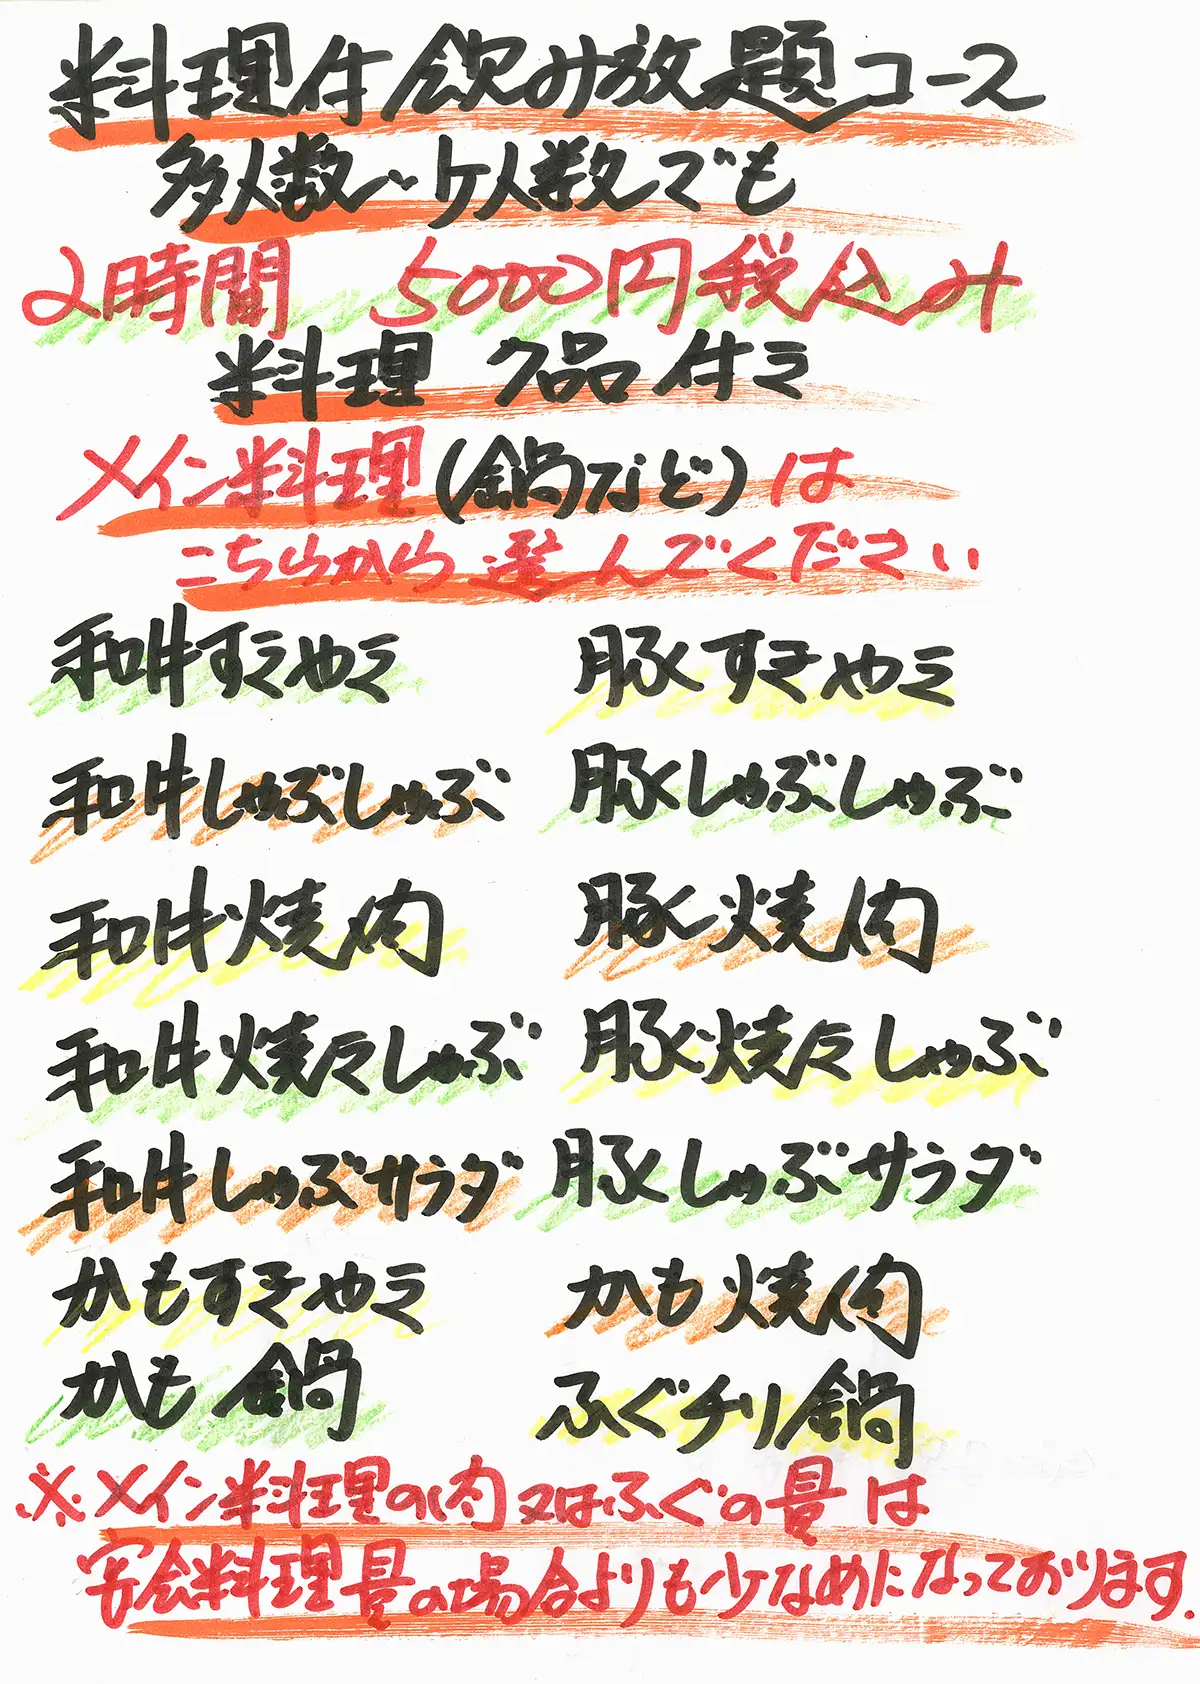 料理付飲み放題コース
多人数〜少人数でも
2時間 5000円税込み
料理 7品付き
メイン料理(鍋など)は
こちらから選んでください
和牛すきやき 豚すきやき
和牛しゃぶしゃぶ 豚しゃぶしゃぶ
和牛焼肉 豚焼肉
和牛焼々しゃぶ 豚焼々しゃぶ
和牛しゃぶサラダ 豚しゃぶサラダ
かもすきやき かも焼肉
かも鍋 ふぐチリ鍋
※メイン料理の肉又はふぐの量は
宴会料理量の場合よりも少なめになっております.